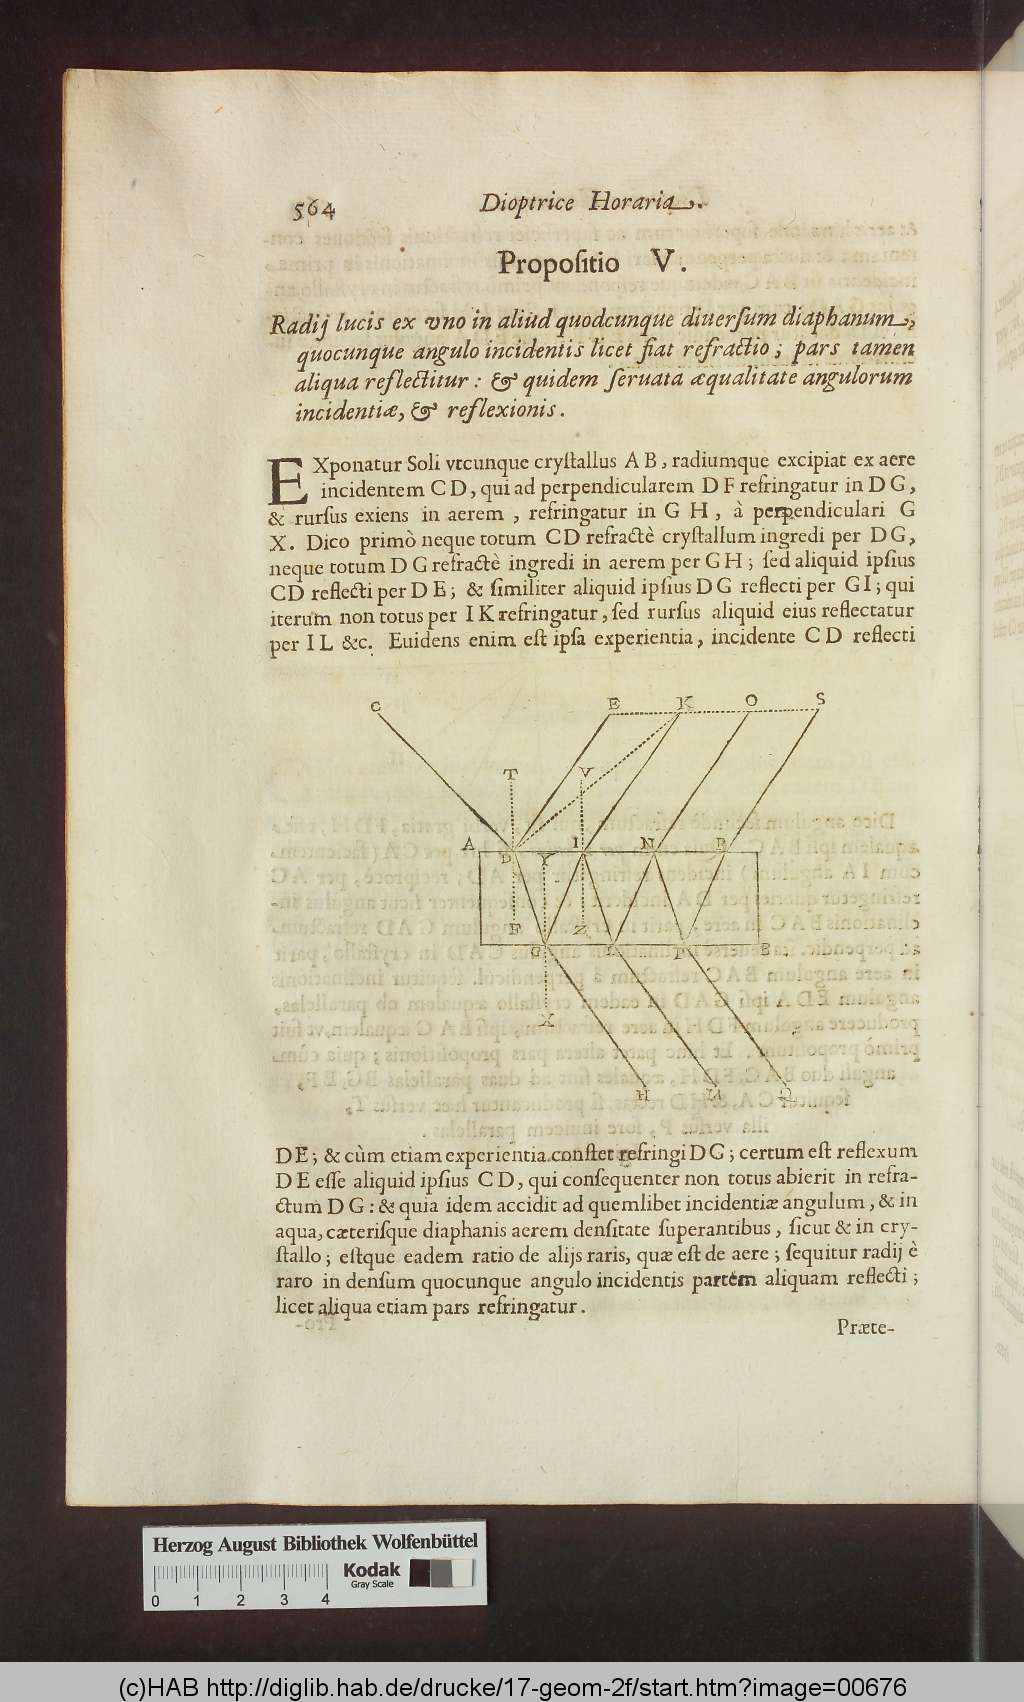 564 Dioptrice Horaria.
Propoſitio V.
Radij lucis ex vno in aliud quodcunque diuerſum diaphanum,
quocunque angulo incidentis licet fiat refractio; pars tamen
aliqua reflectitur: & quidem ſeruata æqualitate angulorum
incidentiæ, & reflexionis.
EXponatur Soli vtcunque cryſtallus A B, radiumque excipiat ex aere
incidentem C D, qui ad perpendicularem D F refringatur in D G,
& rurſus exiens in aerem, refringatur in G H, à perpendiculari G
X. Dico primò neque totum CD refractè cryſtallum ingredi per DG,
neque totum D G refractè ingredi in aerem per G H; ſed aliquid ipſius
CD reflecti per D E; & ſimiliter aliquid ipſius D G reflecti per GI; qui
iterum non totus per I K refringatur, ſed rurſus aliquid eius reflectatur
per I L &c. Euidens enim eſt ipſa experientia, incidente C D reflecti
C E K O S
T V
A D Y I N R
F Z
G L P B
X
H M Q
DE; & cùm etiam experientia conſtet refringi D G; certum eſt reflexum
D E eſſe aliquid ipſius C D, qui conſequenter non totus abierit in refra-
ctum D G: & quia idem accidit ad quemlibet incidentiæ angulum, & in
aqua, cæteriſque diaphanis aerem denſitate ſuperantibus, ſicut & in cry-
ſtallo; eſtque eadem ratio de alijs raris, quæ eſt de aere; ſequitur radij è
raro in denſum quocunque angulo incidentis partem aliquam reflecti;
licet aliqua etiam pars refringatur.
Præte-
Herzog August Bibliothek Wolfenbüttel
Kodak
Gray Scale
0 1 2 3 4
(c)HAB http://diglib.hab.de/drucke/17-geom-2f/start.htm?image=00676